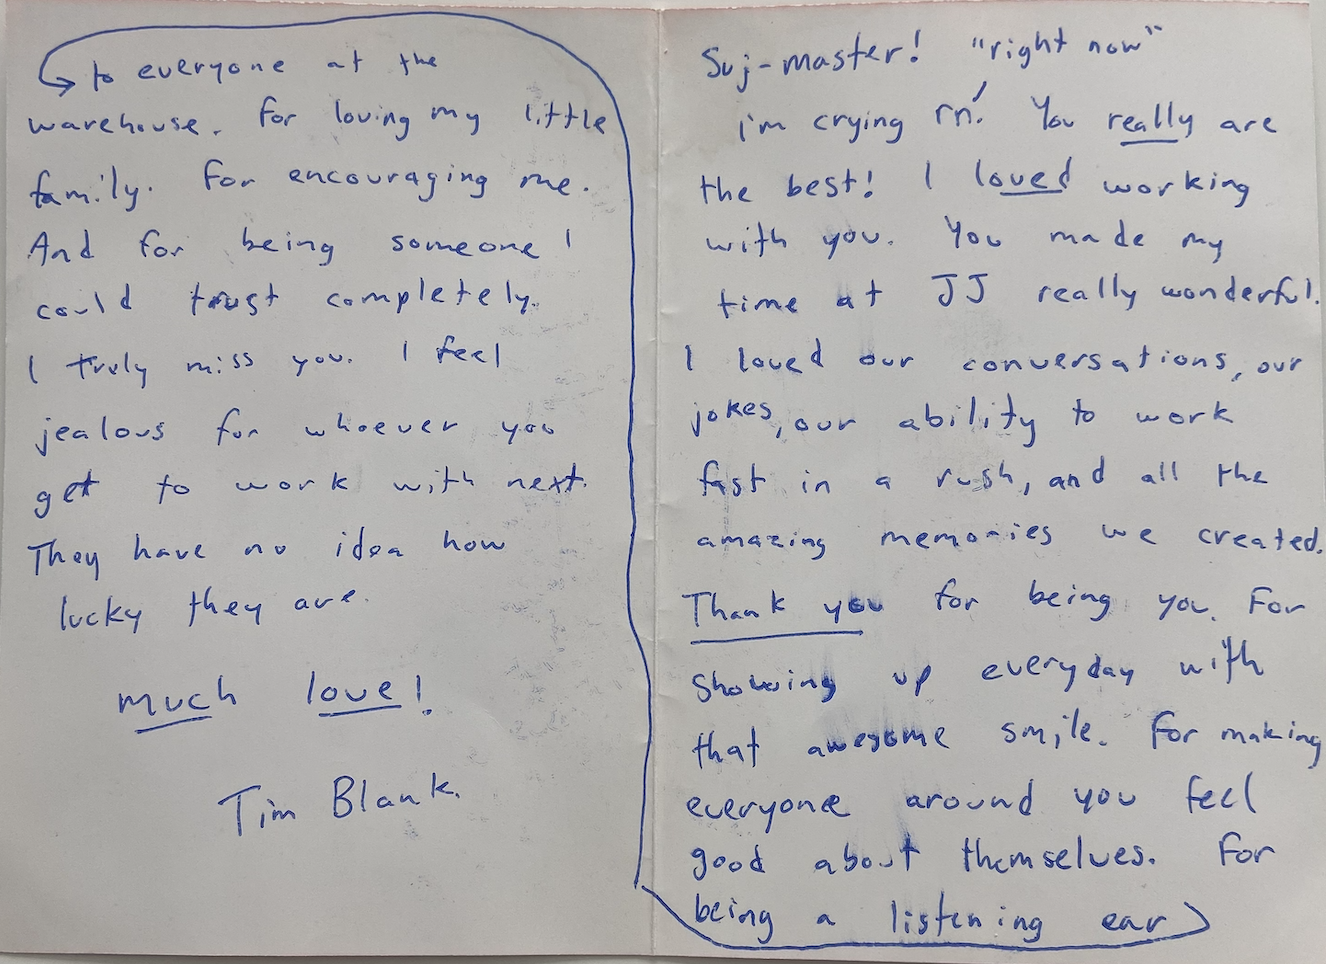 Suj-master! "right now"
i'm crying rn! You really are
the best! I loved working
with you. You made my
time at JJ really wonderful.
I loved our conversations, our
jokes, our ability to work
fast in a rush, and all the
amazing memories we created.
Thank you for being you. For
showing up everyday with
that awesome smile. For making
everyone around you feel
good about themselves. For
being a listening ear
to everyone at the
warehouse. For loving my little
family. For encouraging me.
And for being someone I
could trust completely.
I truly miss you. I feel
jealous for whoever you
get to work with next.
They have no idea how
lucky they are.
much love!
Tim Blank.